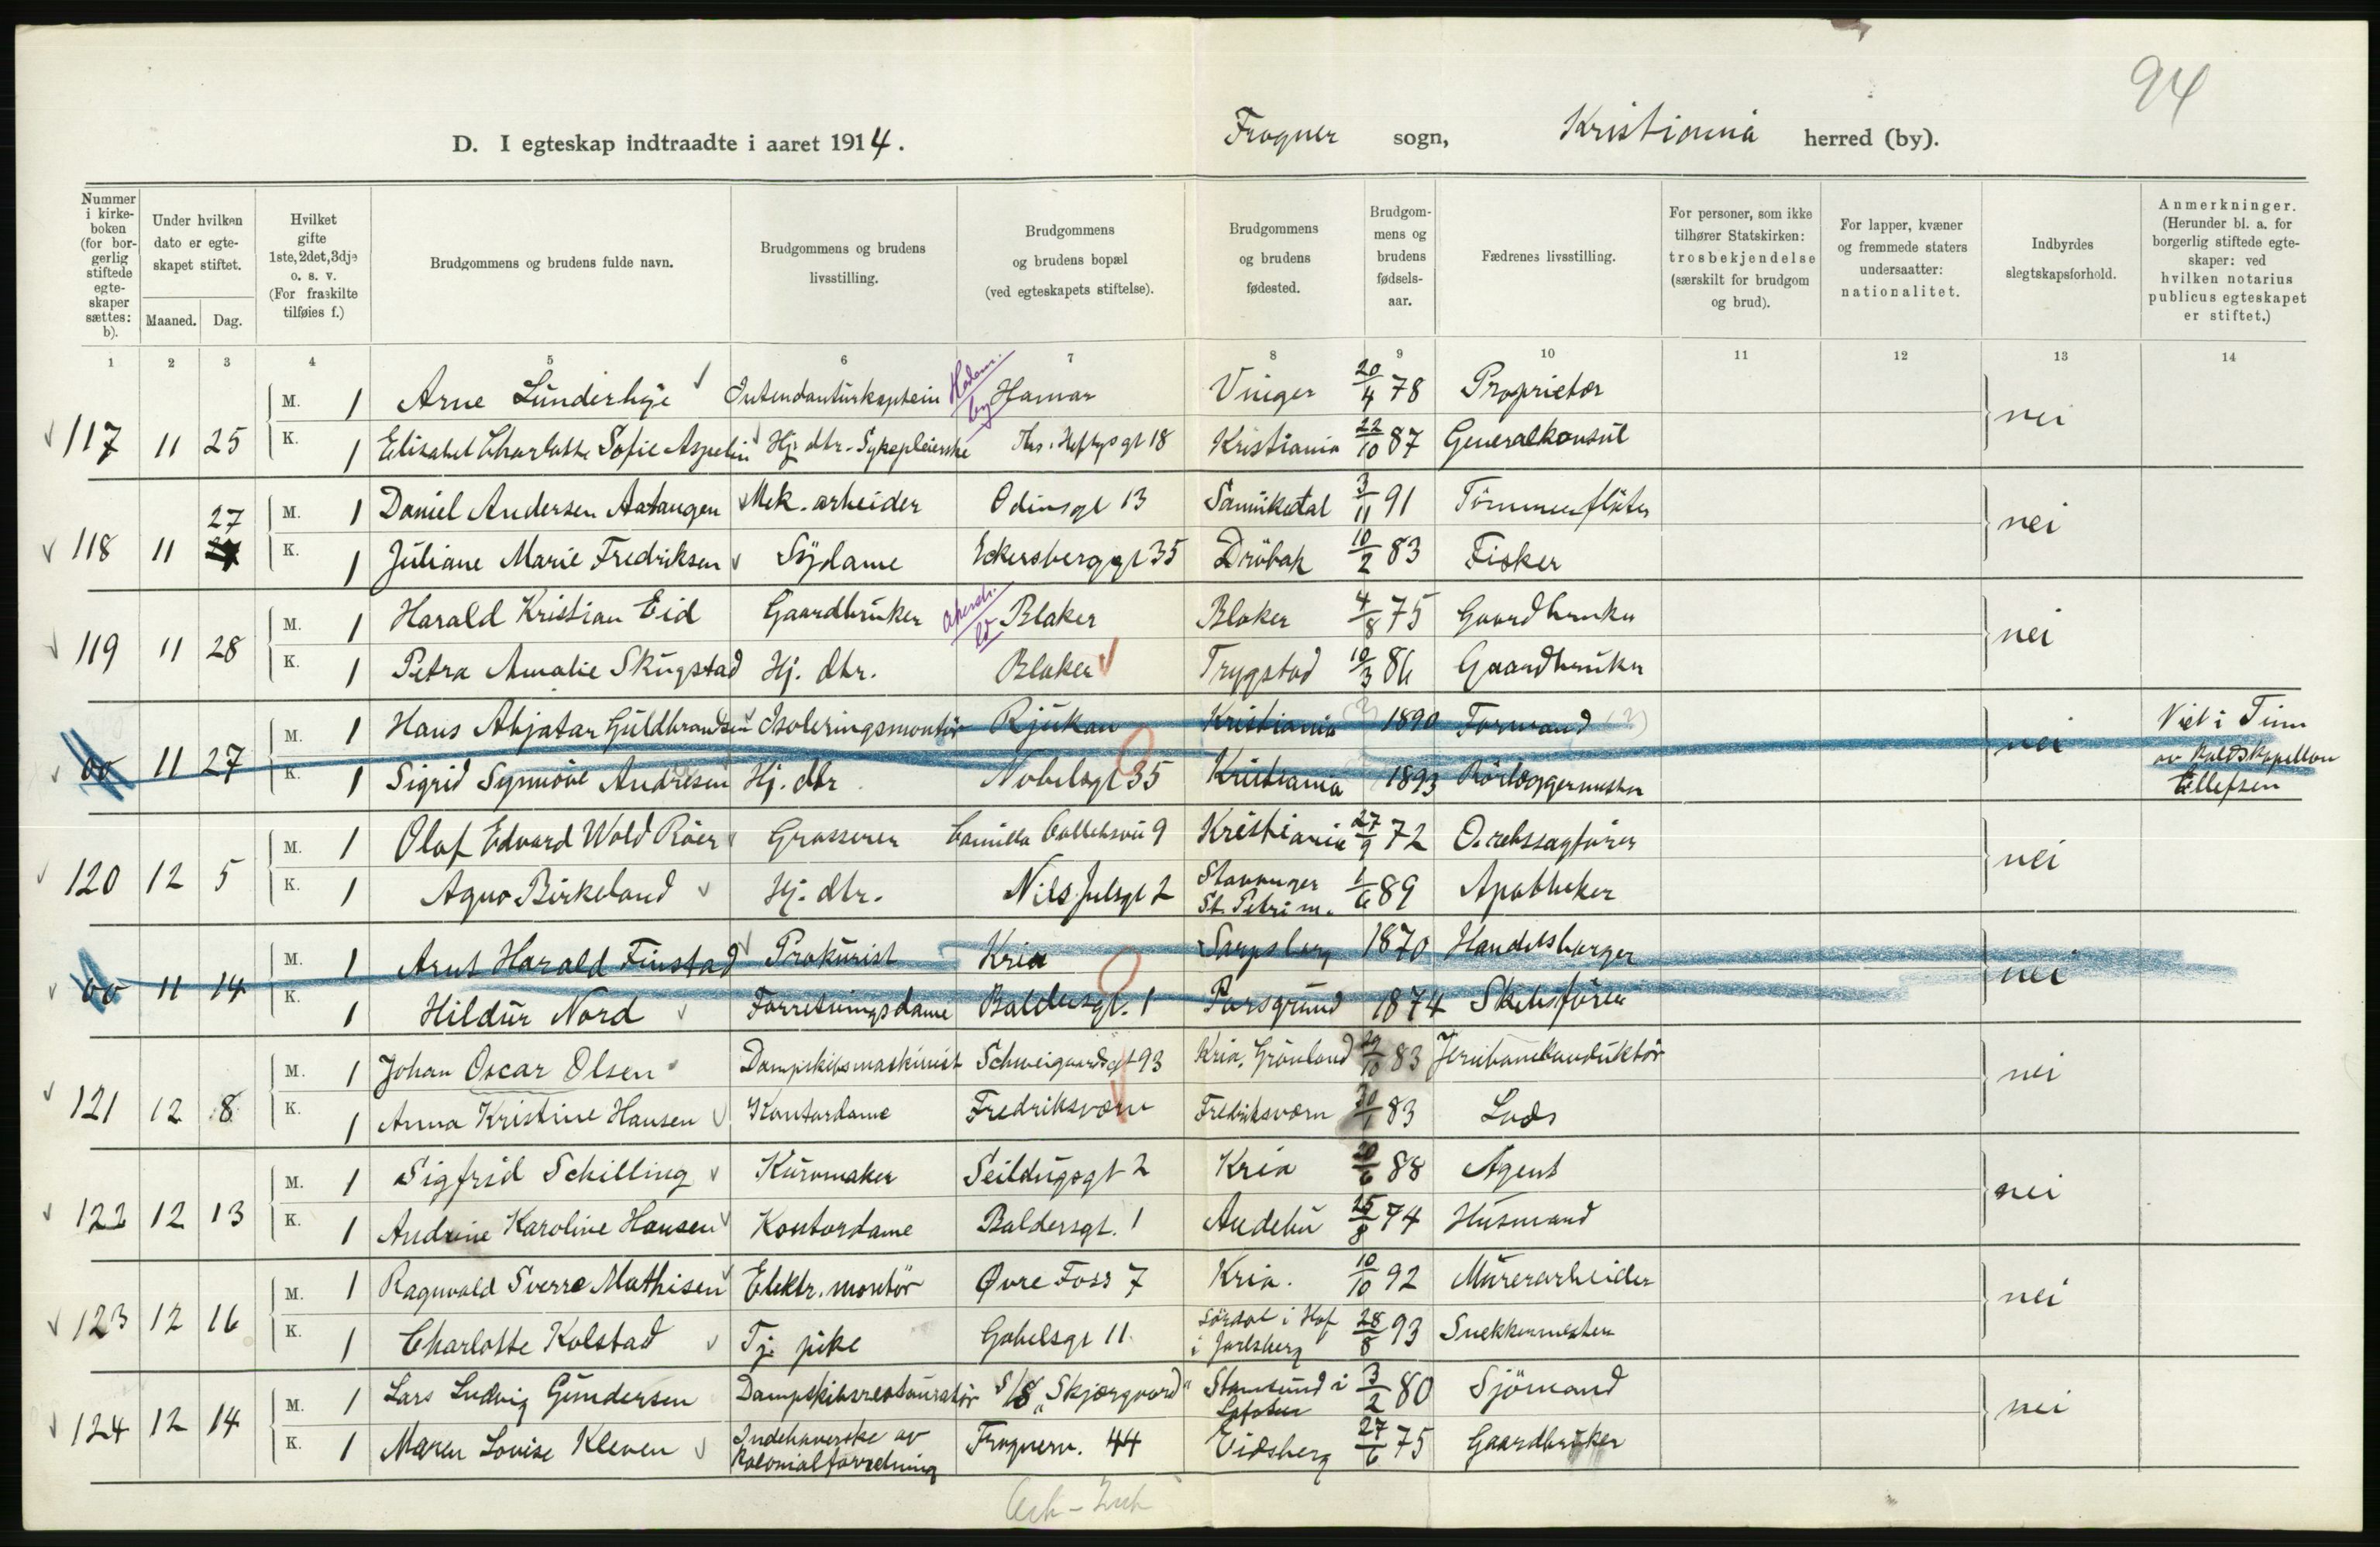 94
D. I egteskap indtraadte i aaret 1914. Frogner sogn, Kristiania herred (by).
Nummer i kirkeboken (for borgerlig stiftede egteskaper sættes: b).
Under hvilken dato er egteskapet stiftet.
Maaned. Dag.
Hvilket gifte 1ste, 2det, 3dje o. s. v. (For fraskilte tilføies f.)
Brudgommens og brudens fulde navn.
Brudgommens og brudens livsstilling.
Brudgommens og brudens bopæl (ved egteskapets stiftelse).
Brudgommens og brudens fødested.
Brudgommens og brudens fødselsaar.
Fædrenes livsstilling.
For personer, som ikke tilhører Statskirken: trosbekjendelse (særskilt for brudgom og brud).
For lapper, kvæner og fremmede staters undersaatter: nationalitet.
Indbyrdes slegtskapsforhold.
Anmerkninger. (Herunder bl. a. for borgerlig stiftede egteskaper: ved hvilken notarius publicus egteskapet er stiftet.)
1 2 3 4 5 6 7 8 9 10 11 12 13 14
M. 1 Arne Lunderbye Intendanturkaptein Hamar Vinger 20/4 78 Proprietær
117 11 25 nei
K. 1 Elisabet Charlotte Sofie Aspelin Hj. dtr. Sykepleierske Ths. Heftysgt 18 Kristiania 22/10 87 Generalkonsul
M. 1 Daniel Andersen Aatangen Mek. arbeider Odinsgt 13 Sannikedal 3/11 91 Tömmerfløter
118 11 27 nei
K. 1 Juliane Marie Fredriksen Sydame Eckersberggt 35 Dröbak 10/2 83 Fisker
M. 1 Harald Kristian Eid Gaardbruker Blaker Blaker 4/8 75 Gaardbruker
119 11 28 nei
K. 1 Petra Amalie Skugstad Hj. dtr. Blaker Trygstad 10/3 86 Gaardbruker
M. 1 Hans Abjatar Guldbrandsen Isoleringsmontör Rjukan Kristiania (?) 1890 Formand (?)
00 11 27 nei Viet i Tinn av Kaldskapellan Ellefsen
K. 1 Sigrid Synnöve Andresen Hj. dtr. Nobelsgt 35 Kristiania 1893 Rörlæggermester
M. 1 Olaf Edvard Wold Röer Grosserer Camilla Colletsvei 9 Kristiania 27/9 72 O.retssagförer
120 12 5 nei
K. 1 Agno Birkeland Hj. dtr. Nils Julsgt 2 Stavanger St. Petri m. 1/6 89 Apotheker
M. 1 Arnt Harald Finstad Prokurist Kria Sarpsborg 1870 Handelsborger
00 11 14 nei
K. 1 Hildur Nord Forretningsdame Baldersgt. 1 Porsgrund 1874 Skibsförer
M. 1 Johan Oscar Olsen Dampskibsmaskinist Schweigaardsgt 93 Kria. Grönland 29/10 83 Jernbanekonduktör
121 12 8 nei
K. 1 Anna Kristine Hansen Kontordame Fredriksværn Fredriksværn 30/1 83 Lods
M. 1 Sigfrid Schilling Kurvmaker Seildugsgt 2 Kria 20/6 88 Agent
122 12 13 nei
K. 1 Andrine Karoline Hansen Kontordame Baldersgt. 1 Andebu 25/8 74 Husmand
M. 1 Ragnvald Sverre Mathisen Elektr. montör Øvre Foss 7 Kria. 10/10 92 Murerarbeider
123 12 16 nei
K. 1 Charlotte Kolstad Tj. pike Gabelsgt 11. i Hof i Jarlsberg 28/8 93 Snekkermester
M. 1 Lars Ludvig Gundersen Dampskibsrestauratör S/S „Skjærgaard" Stamsund i Lofoten 3/2 80 Sjömand
124 12 14 nei
K. 1 Maren Lovise Kleven Indehaverske av Kolonialforretning Frognerv. 44 Eidsberg 27/6 75 Gaardbruker